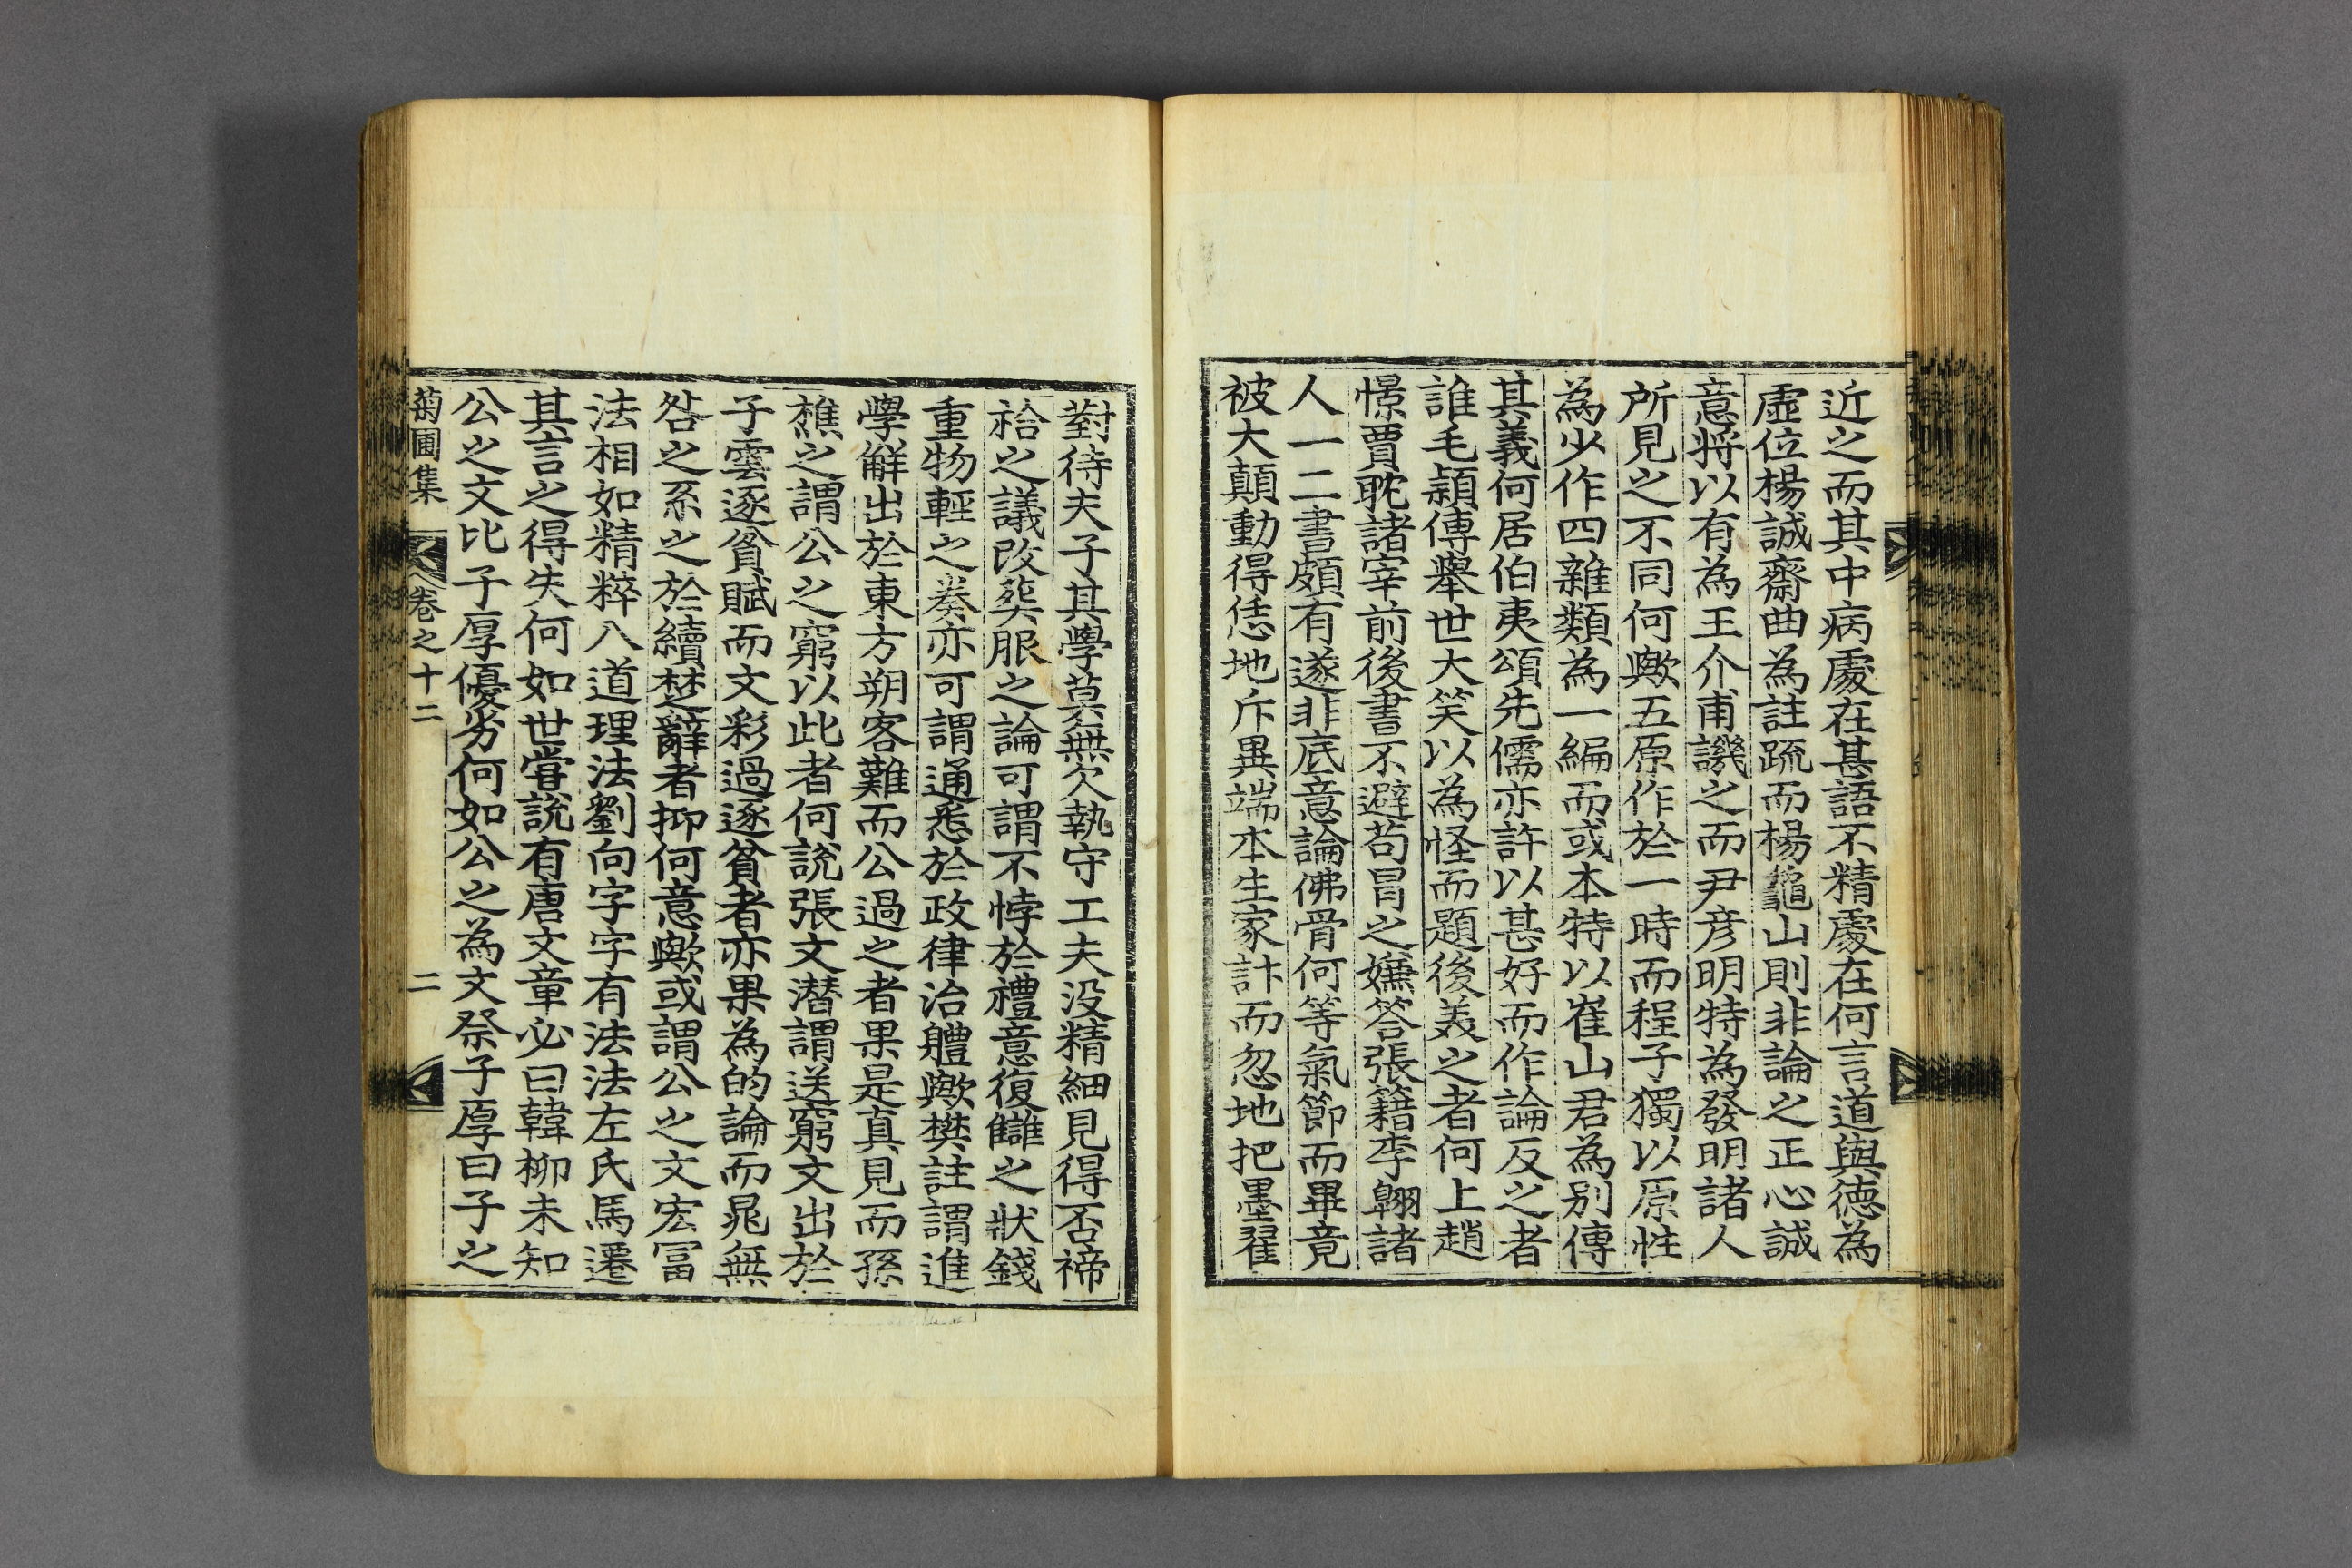 近之而其中病處在甚語不精處在何言道與德為
虛位楊誠齋曲為註疏而楊龜山則非論之正心誠
意将以有為王介甫譏之而尹彦明特為發明諸人
所見之不同何歟五原作於一時而程子獨以原性
為少作四雜類為一編而或本特以崔山君為別傳
其義何居伯夷頌先儒亦許以甚好而作論反之者
誰毛穎傳舉世大笑以為怪而題後美之者何上趙
憬賈耽諸宰前後書不避苟冒之嫌答張籍李翶諸
人一二書頗有遂非底意論佛骨何等氣節而畢竟
被大顛動得恁地斥異端本生家計而忽地把墨翟
對待夫子其學莫無欠執守工夫没精細見得否禘
祫之議改葬服之論可謂不悖於禮意復讎之狀錢
重物輕之奏亦可謂通悉於政律治體歟樊註謂進
學解出於東方朔客難而公過之者果是真見而孫
樵之謂公之窮以此者何說張文潜謂送窮文出於
子雲逐貧賦而文彩過逐貧者亦果為的論而晁無
咎之系之於續楚辭者抑何意歟或謂公之文宏冨
法相如精粹八道理法劉向字字有法法左氏馬遷
其言之得失何如世嘗說有唐文章必曰韓柳未知
公之文比子厚優劣何如公之為文祭子厚曰子之
菊圃集 卷之十二 二